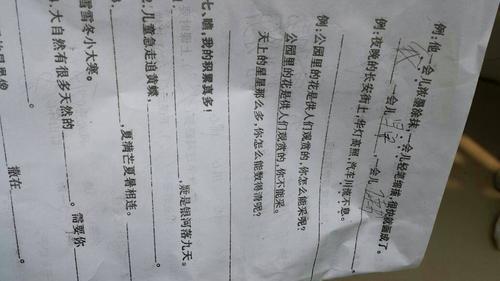 例:他一会儿浓墨涂抹,一会儿轻笔细描,很快就画成了。
一会儿 一会儿
例:夜晚的长安街上,华灯高照,汽车川流不息。
例:公园里的花是供人们观赏的,你怎么能采呢?
公园里的花是供人们观赏的,你不能采。
天上的星星那么多,你怎么能数得清呢?
七、瞧,我的积累真多!
,疑是银河落九天。
2.儿童急走追黄蝶,
,夏满芒夏暑相连。
雪雪冬小大寒。
4.大自然有很多天然的 。需要你
撒在